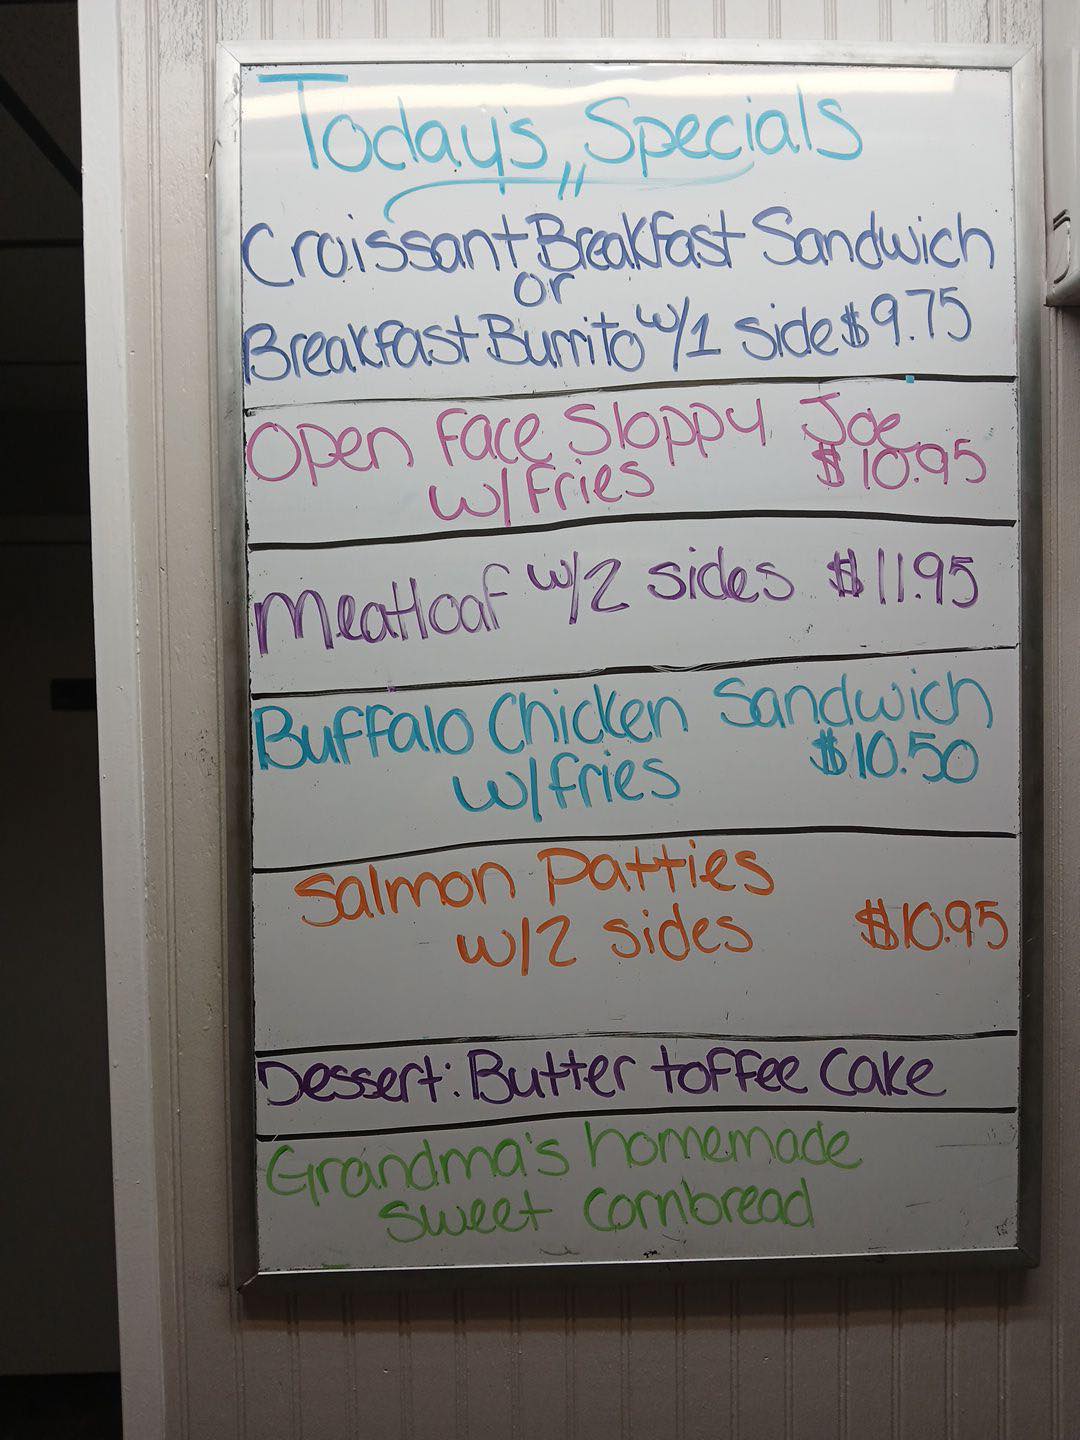 Today's Specials
Croissant Breakfast Sandwich
or
Breakfast Burrito w/1 side $9.75
Open Face Sloppy Joe
w/Fries $10.95
Meatloaf w/2 sides $11.95
Buffalo Chicken Sandwich
w/fries $10.50
Salmon Patties
w/2 sides $10.95
Dessert: Butter toffee Cake
Grandma's homemade
sweet cornbread